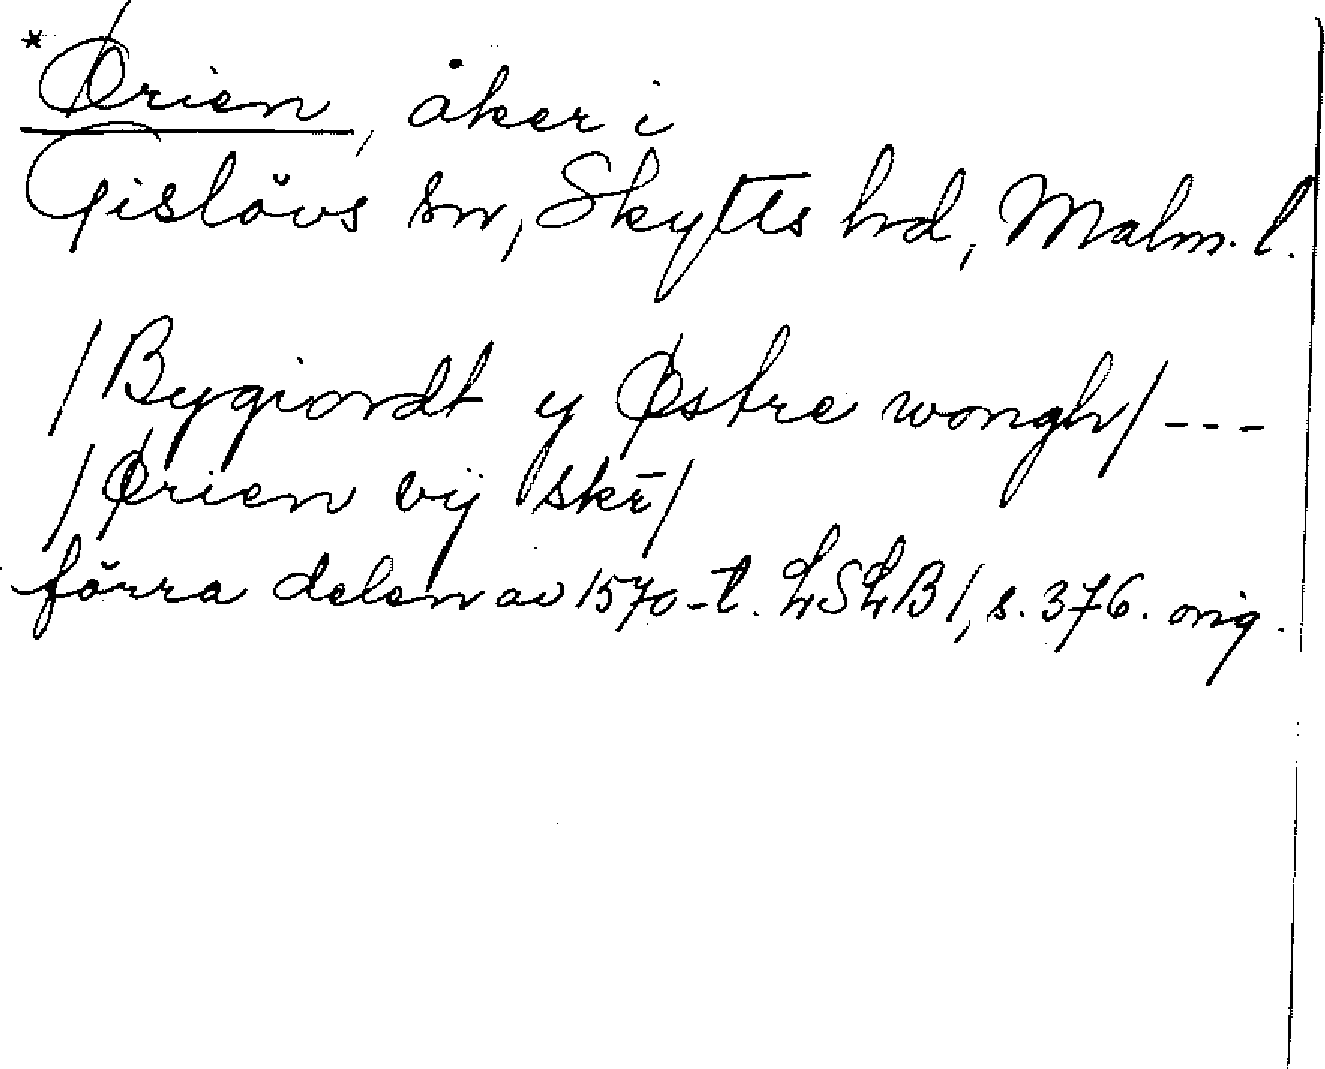 *Ørien, åker i
Gislövs sn, Skytts hd, Malm. l.
/Bygiordt y Østre wongh/ ---
/Ørien vij skr̄/
förra delen av 1570-t. LSLB 1, s. 376. orig.